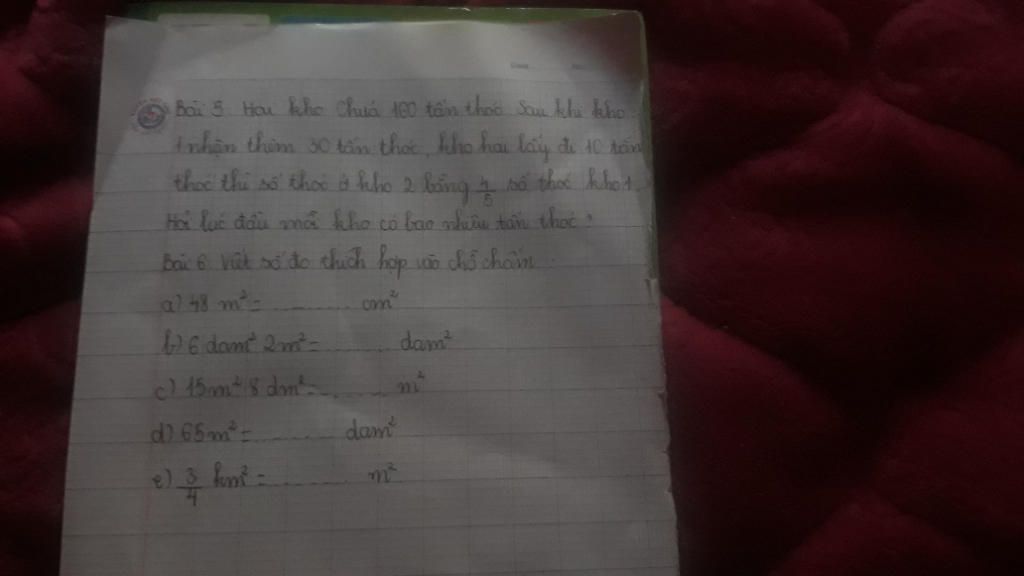 Bài 5. Hai kho chứa 160 tấn thóc. Sau khi kho
1 nhận thêm 30 tấn thóc, kho hai lấy đi 10 tấn
thóc thì số thóc ở kho 2 bằng 4/5 số thóc kho 1.
Hỏi lúc đầu mỗi kho có bao nhiêu tấn thóc?
Bài 6. Viết số đo thích hợp vào chỗ chấm
a) 48 m² = ........... cm²
b) 6 dam² 2m² = ......... dam²
c) 15m² 8 dm² = ......... m²
d) 65m² = ........... dam²
e) 3/4 km² = ........... m²